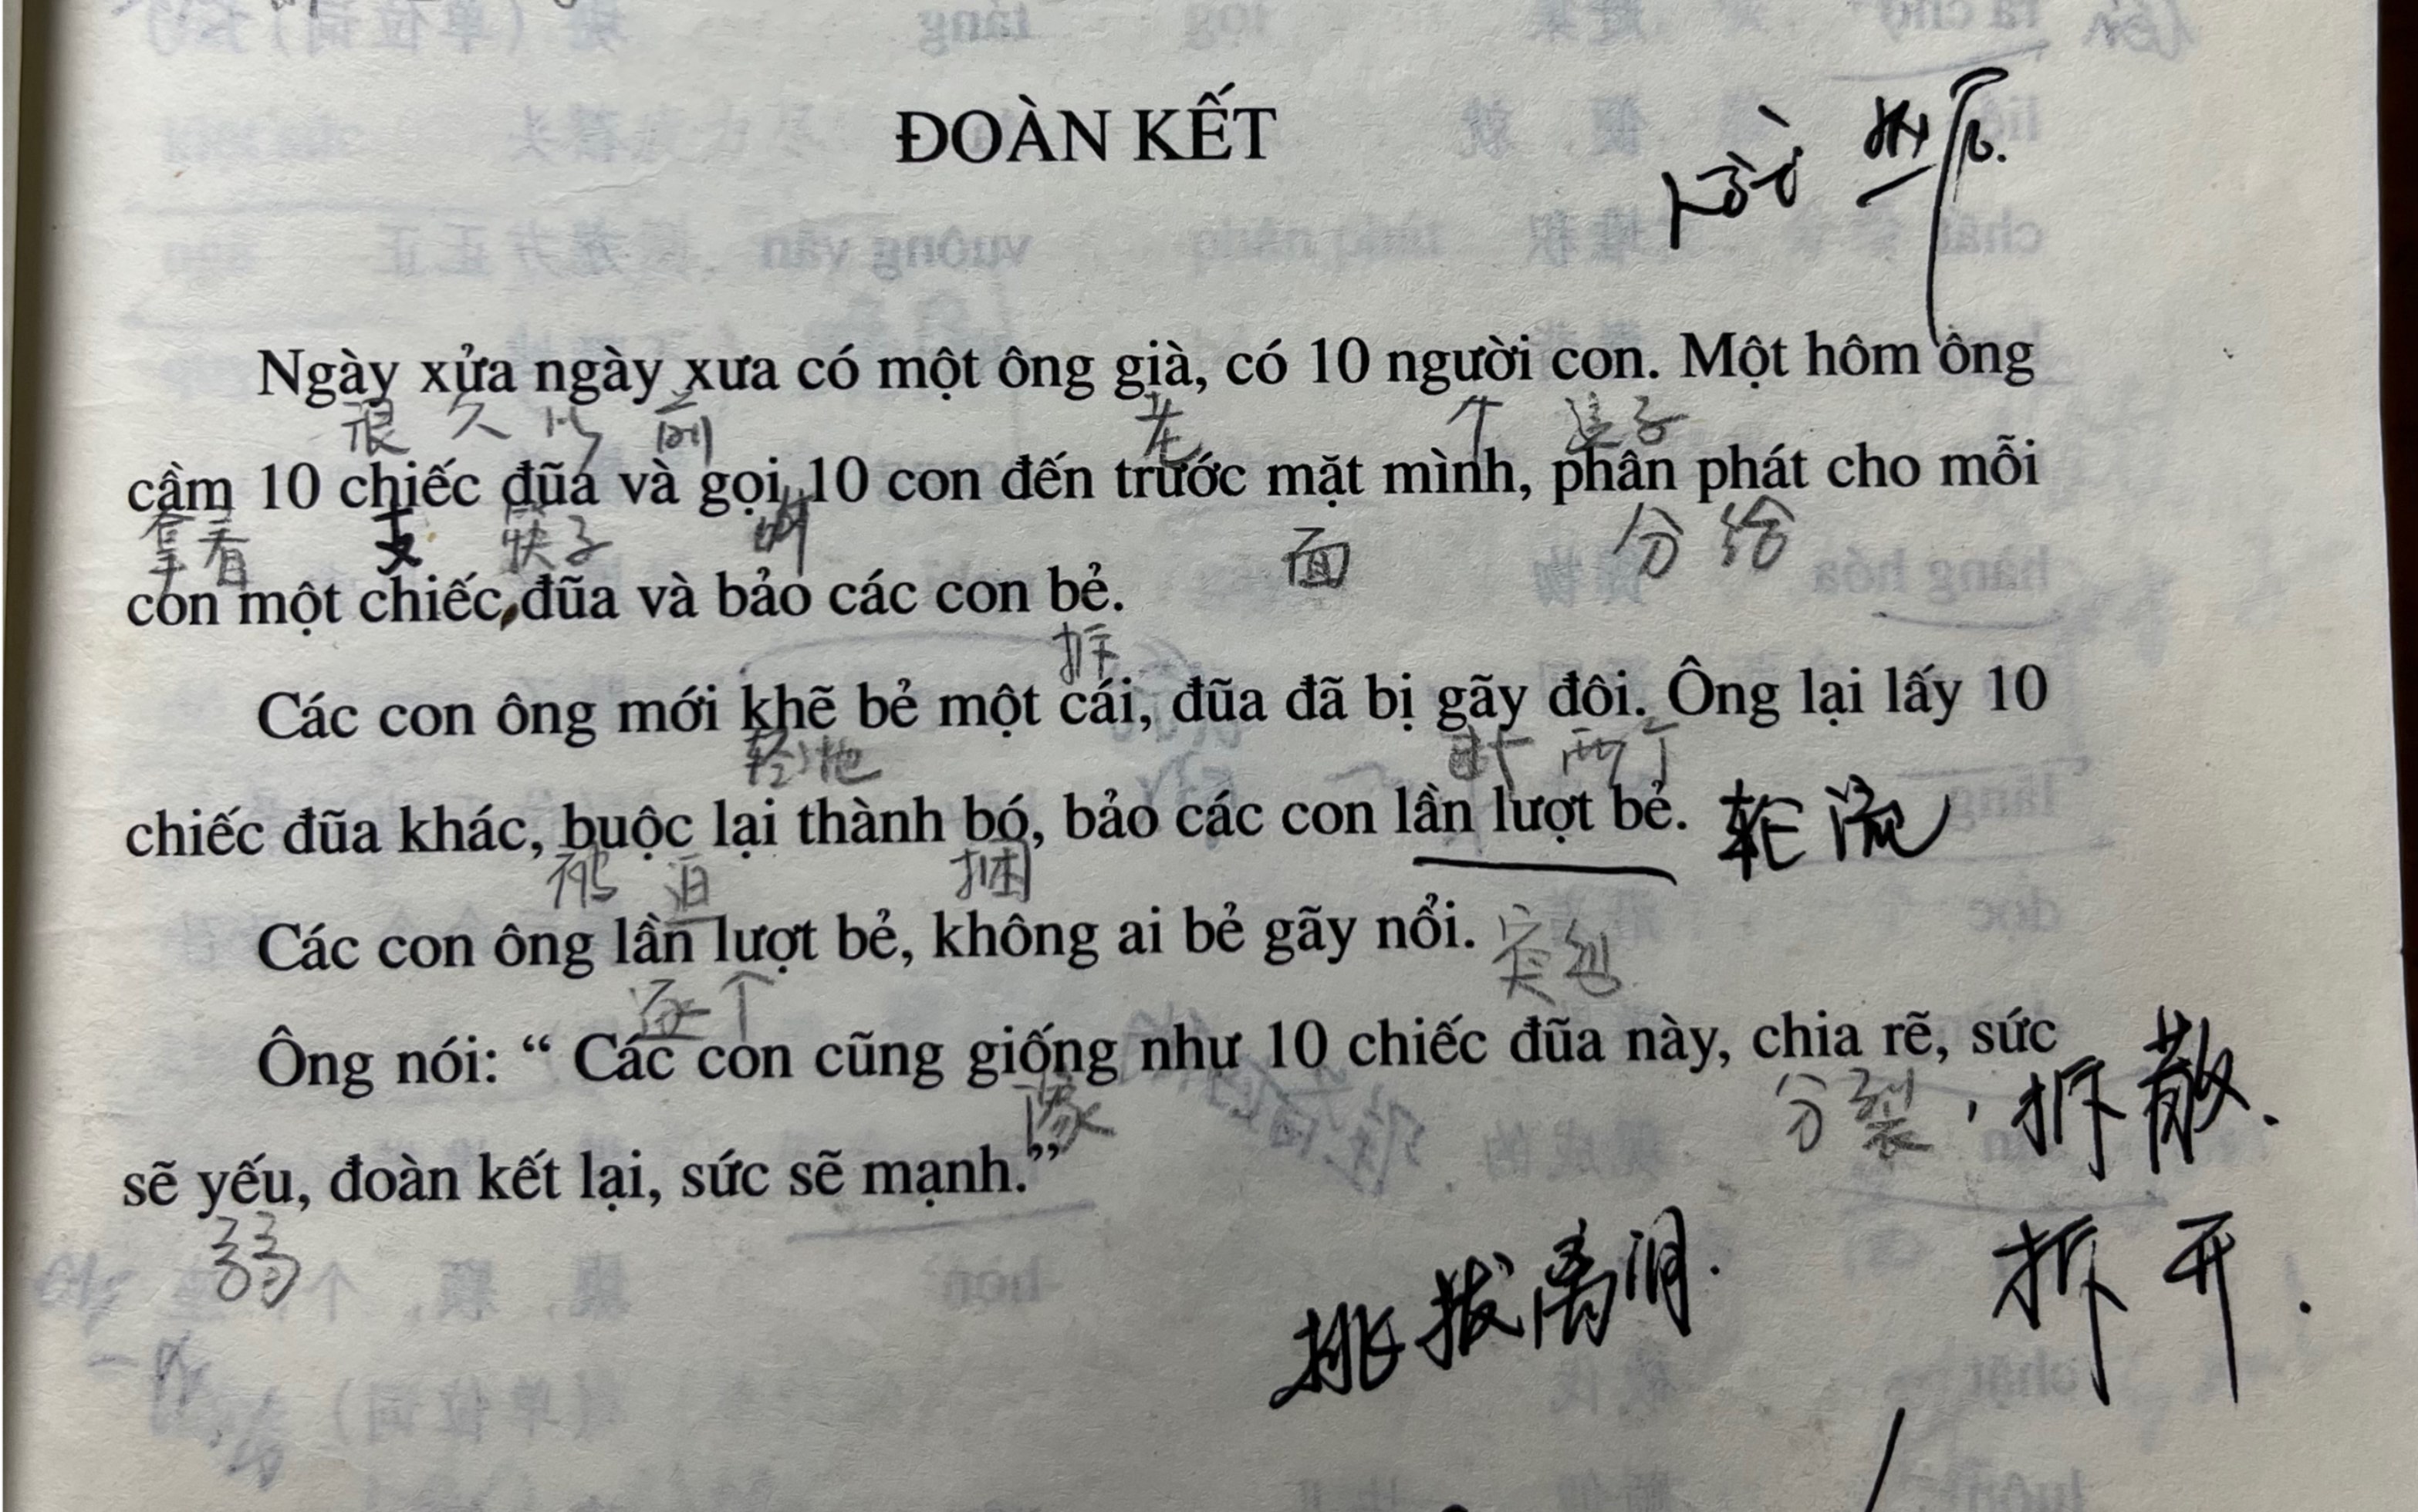 ĐOÀN KẾT
Ngày xửa ngày xưa có một ông già, có 10 người con. Một hôm ông
很久以前 老 个 孩子
cầm 10 chiếc đũa và gọi 10 con đến trước mặt mình, phân phát cho mỗi
拿着 支 筷子 叫 面 分给
con một chiếc đũa và bảo các con bẻ.
拆
Các con ông mới khẽ bẻ một cái, đũa đã bị gãy đôi. Ông lại lấy 10
轻地 断 两个
chiếc đũa khác, buộc lại thành bó, bảo các con lần lượt bẻ. 轮流
捆
Các con ông lần lượt bẻ, không ai bẻ gãy nổi.
逐个
Ông nói: “ Các con cũng giống như 10 chiếc đũa này, chia rẽ, sức
像 分裂, 拆散.
sẽ yếu, đoàn kết lại, sức sẽ mạnh.”
弱
挑拨离间. 拆开.